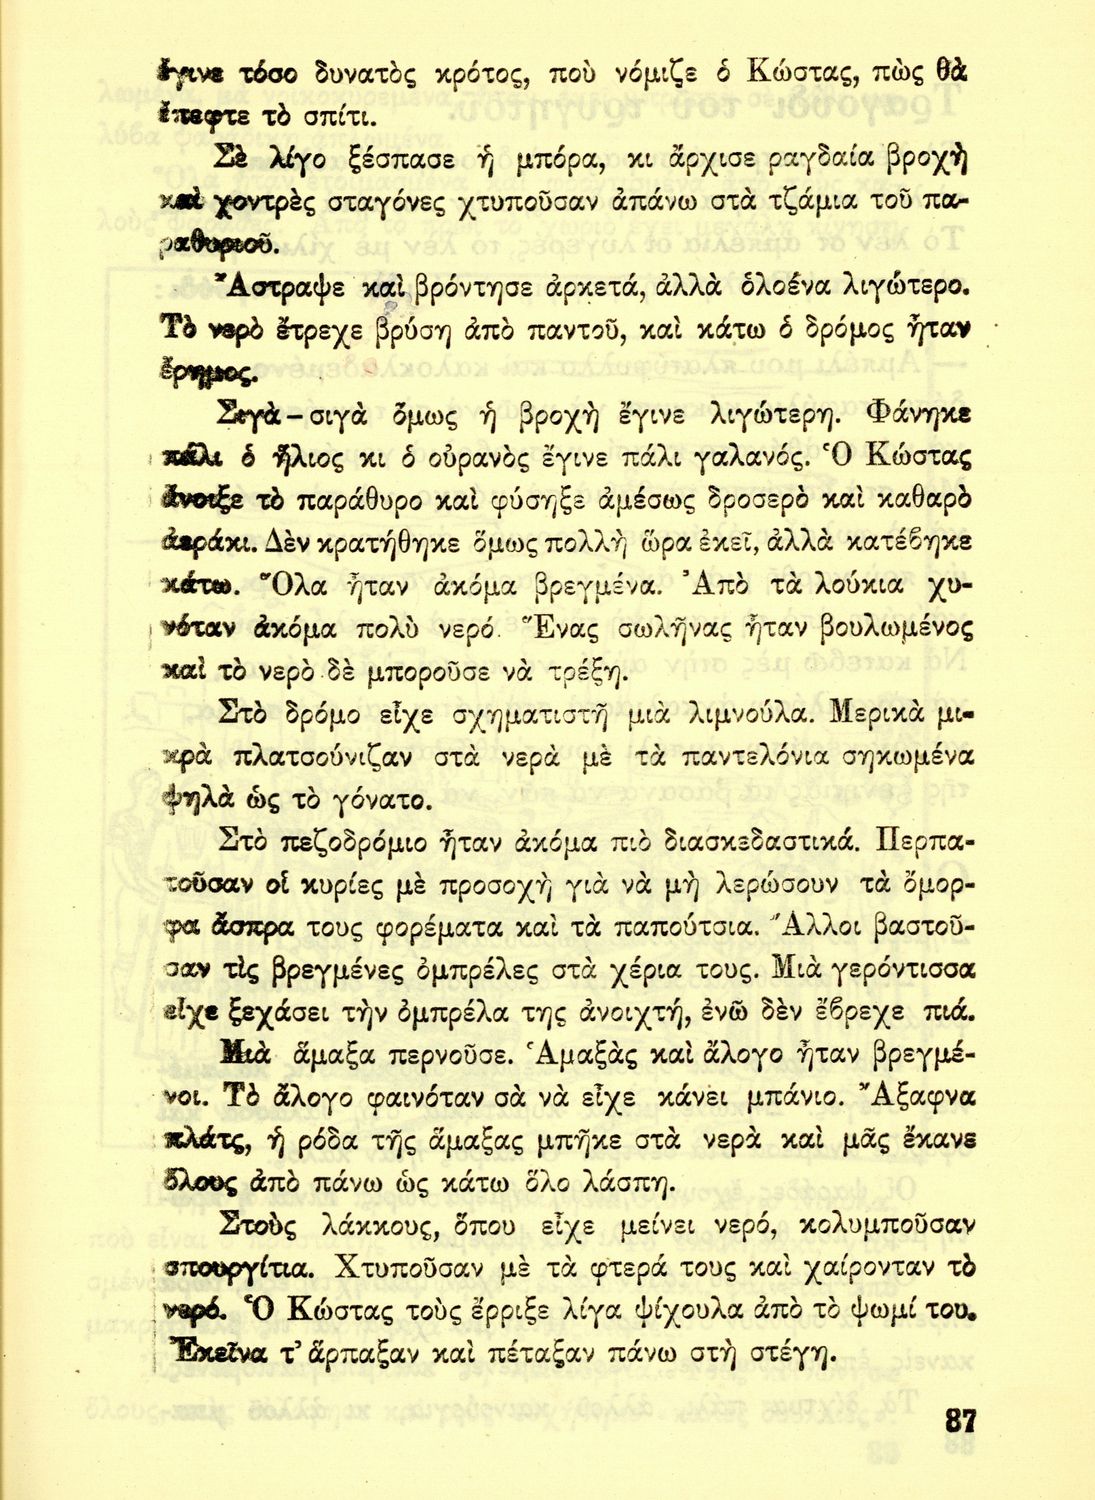 ἔγινε τόσο δυνατὸς κρότος, ποὺ νόμιζε ὁ Κώστας, πὼς θὰ
ἔπεφτε τὸ σπίτι.
Σὲ λίγο ξέσπασε ἡ μπόρα, κι ἄρχισε ραγδαία βροχὴ
καὶ χοντρὲς σταγόνες χτυποῦσαν ἀπάνω στὰ τζάμια τοῦ πα-
ραθυριοῦ.
Ἄστραψε καὶ βρόντησε ἀρκετά, ἀλλὰ ὁλοένα λιγώτερο.
Τὸ νερὸ ἔτρεχε βρύση ἀπὸ παντοῦ, καὶ κάτω ὁ δρόμος ἦταν
ἔρημος.
Σιγὰ – σιγὰ ὅμως ἡ βροχὴ ἔγινε λιγώτερη. Φάνηκε
πάλι ὁ ἥλιος κι ὁ οὐρανὸς ἔγινε πάλι γαλανός. Ὁ Κώστας
ἄνοιξε τὸ παράθυρο καὶ φύσηξε ἀμέσως δροσερὸ καὶ καθαρὸ
ἀεράκι. Δὲν κρατήθηκε ὅμως πολλὴ ὥρα ἐκεῖ, ἀλλὰ κατέβηκε
κάτω. Ὅλα ἦταν ἀκόμα βρεγμένα. Ἀπὸ τὰ λούκια χυ-
νόταν ἀκόμα πολὺ νερό. Ἕνας σωλῆνας ἦταν βουλωμένος
καὶ τὸ νερὸ δὲ μποροῦσε νὰ τρέξη.
Στὸ δρόμο εἶχε σχηματιστῆ μιὰ λιμνούλα. Μερικὰ μι-
κρὰ πλατσούνιζαν στὰ νερὰ μὲ τὰ παντελόνια σηκωμένα
ψηλὰ ὡς τὸ γόνατο.
Στὸ πεζοδρόμιο ἦταν ἀκόμα πιὸ διασκεδαστικά. Περπα-
τοῦσαν οἱ κυρίες μὲ προσοχὴ γιὰ νὰ μὴ λερώσουν τὰ ὄμορ-
φα ἄσπρα τους φορέματα καὶ τὰ παπούτσια. Ἄλλοι βαστοῦ-
σαν τὶς βρεγμένες ὀμπρέλες στὰ χέρια τους. Μιὰ γερόντισσα
εἶχε ξεχάσει τὴν ὀμπρέλα της ἀνοιχτή, ἐνῶ δὲν ἔβρεχε πιά.
Μιὰ ἅμαξα περνοῦσε. Ἁμαξὰς καὶ ἄλογο ἦταν βρεγμέ-
νοι. Τὸ ἄλογο φαινόταν σὰ νὰ εἶχε κάνει μπάνιο. Ἄξαφνα
πλάτς, ἡ ρόδα τῆς ἅμαξας μπῆκε στὰ νερὰ καὶ μᾶς ἔκανε
ὅλους ἀπὸ πάνω ὡς κάτω ὅλο λάσπη.
Στοὺς λάκκους, ὅπου εἶχε μείνει νερό, κολυμποῦσαν
σπουργίτια. Χτυποῦσαν μὲ τὰ φτερά τους καὶ χαίρονταν τὸ
νερό. Ὁ Κώστας τοὺς ἔρριξε λίγα ψίχουλα ἀπὸ τὸ ψωμί του.
Ἐκεῖνα τ' ἅρπαξαν καὶ πέταξαν πάνω στὴ στέγη.
87